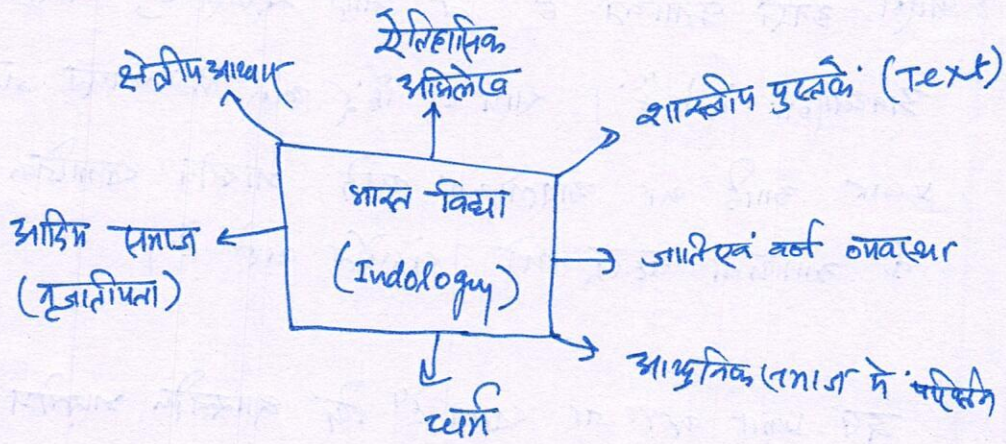 क्षेत्रीय आयाम
ऐतिहासिक
अभिलेख
शास्त्रीय पुस्तकें (Text)
भारत विद्या
(Indology)
आदिम समाज
(नृजातीयता)
जाति एवं वर्ण व्यवस्था
आधुनिक समाज में परिवर्तन
धर्म